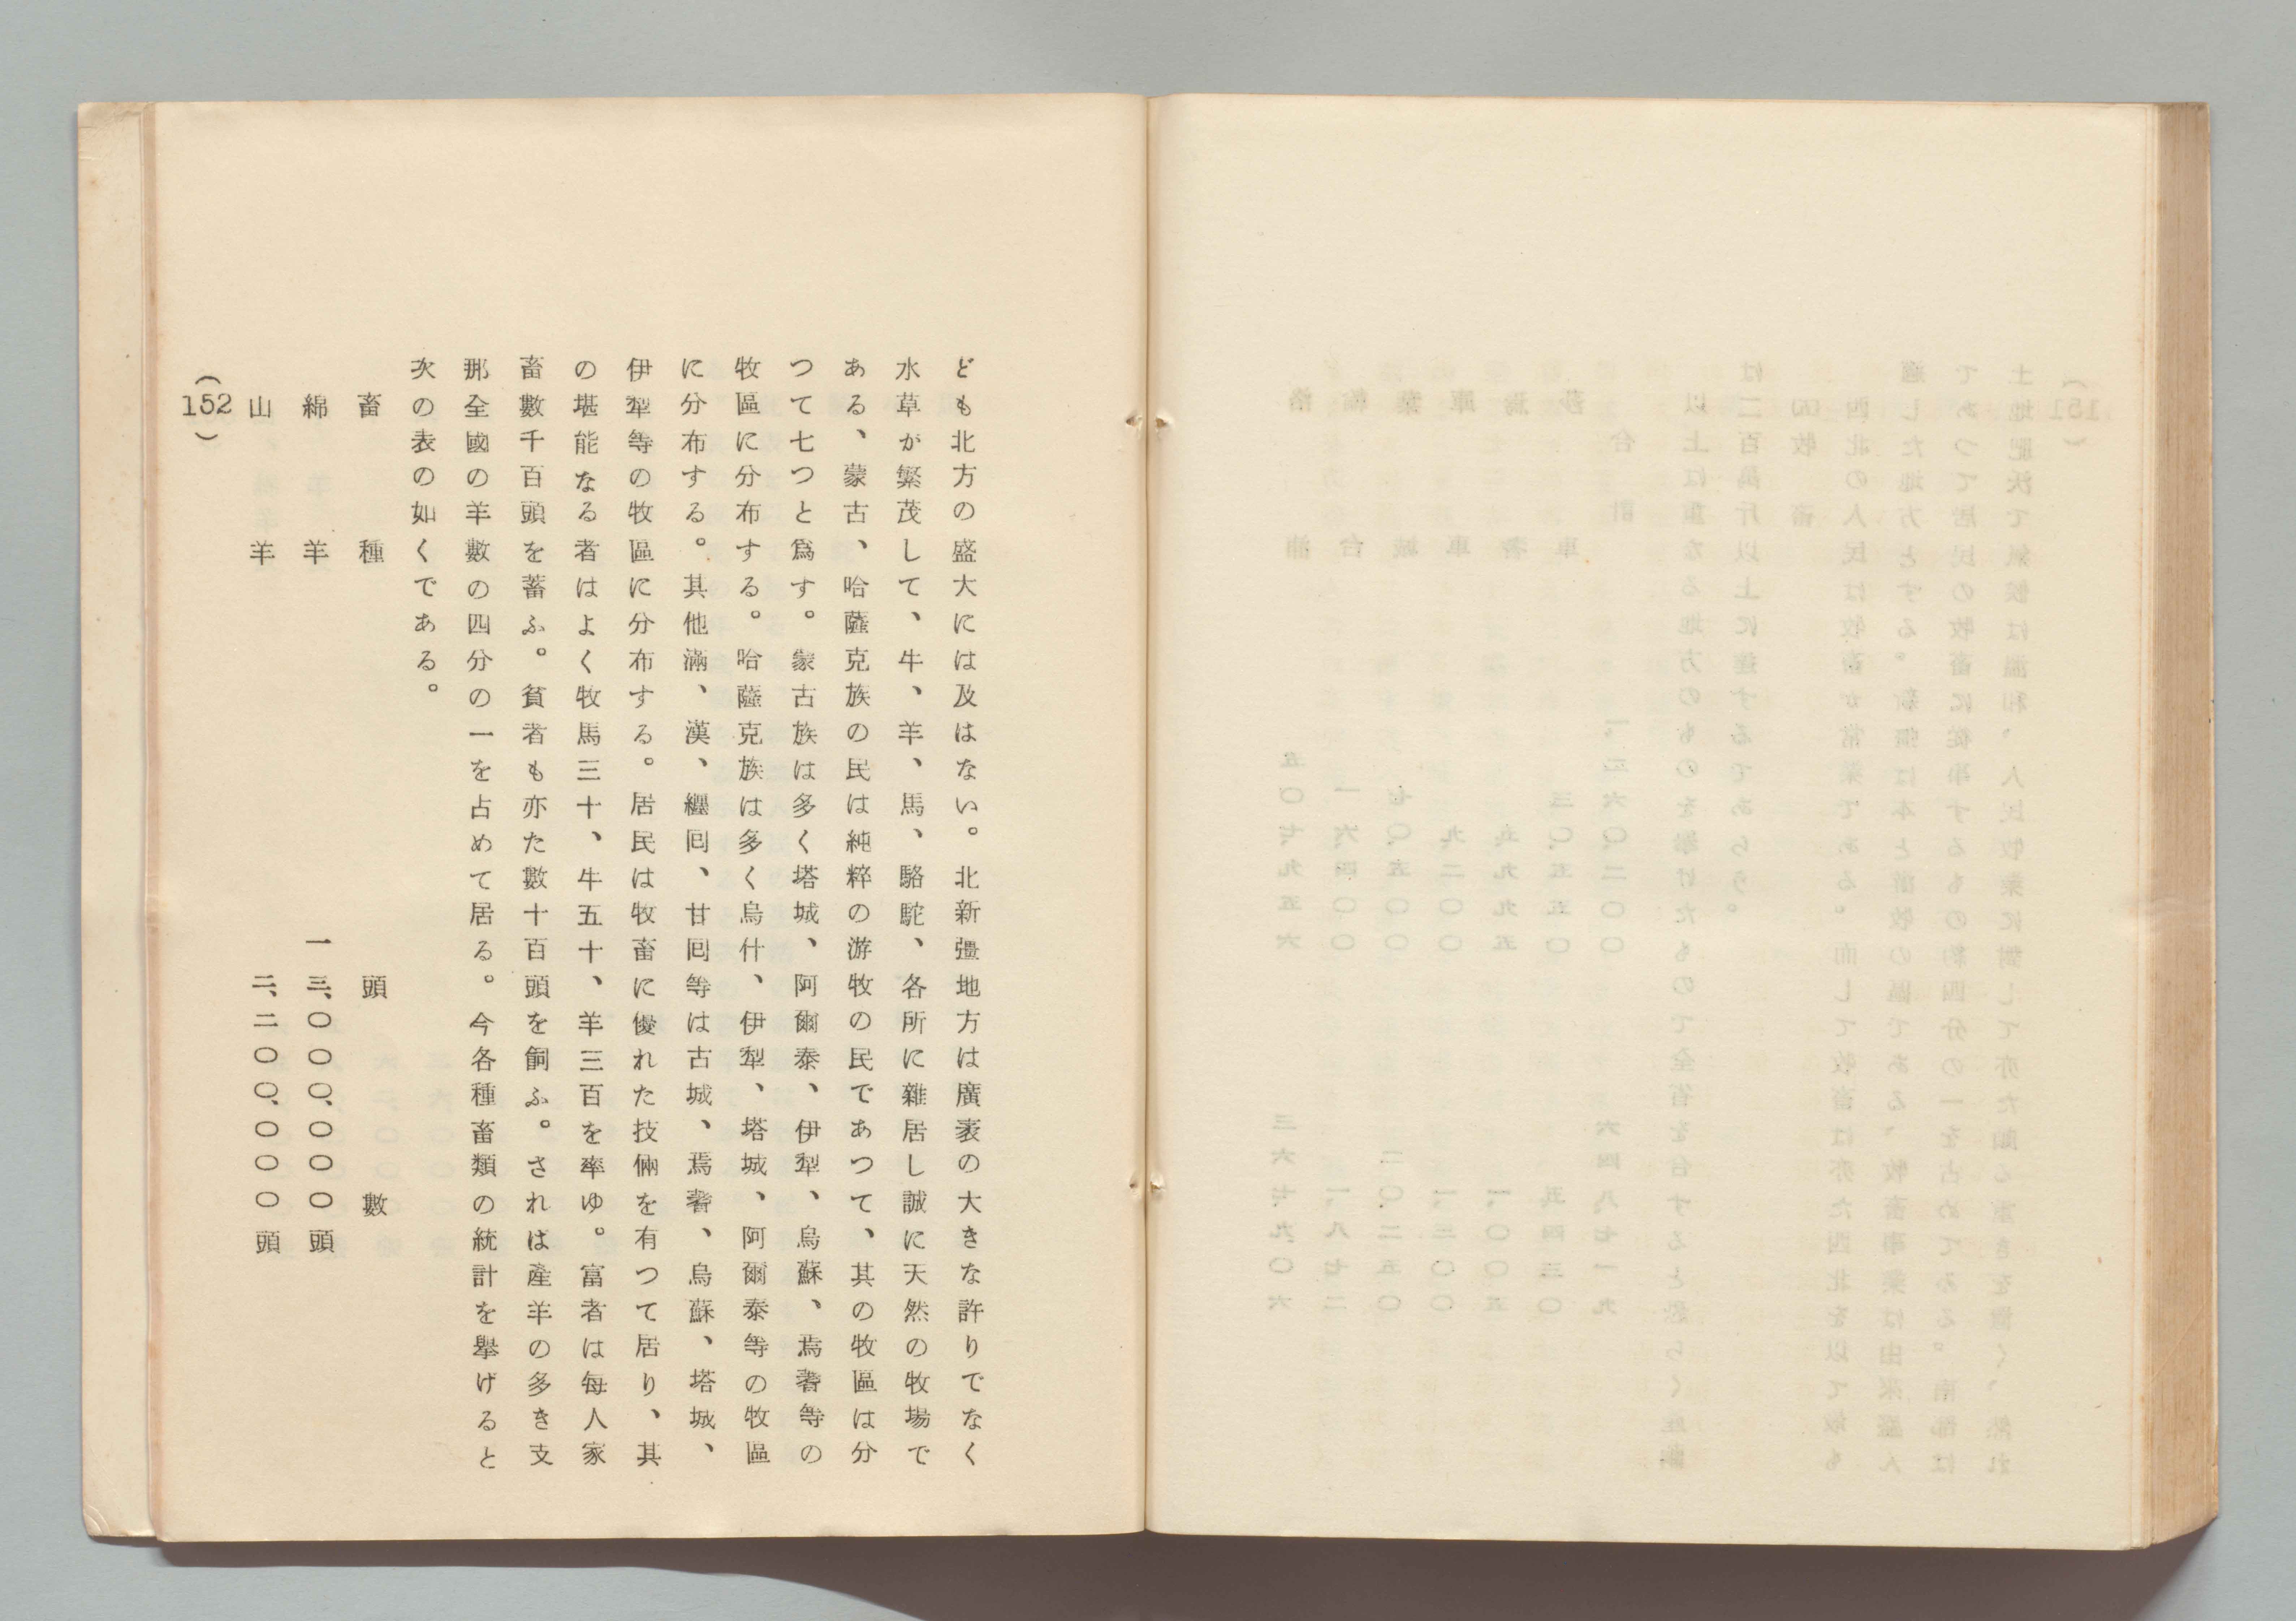 ども北方の盛大には及はない。北新彊地方は廣袤の大きな許りでなく
水草が繁茂して、牛、羊、馬、駱駝、各所に雜居し誠に天然の牧場で
ある、蒙古、哈薩克族の民は純粹の游牧の民であつて、其の牧區は分
つて七つと爲す。蒙古族は多く塔城、阿爾泰、伊犁、烏蘇、焉耆等の
牧區に分布する。哈薩克族は多く烏什、伊犁、塔城、阿爾泰等の牧區
に分布する。其他滿、漢、纒囘、甘囘等は古城、焉耆、烏蘇、塔城、
伊犁等の牧區に分布する。居民は牧畜に優れた技倆を有つて居り、其
の堪能なる者はよく牧馬三十、牛五十、羊三百を率ゆ。富者は每人家
畜數千百頭を蓄ふ。貧者も亦た數十百頭を飼ふ。されは產羊の多き支
那全國の羊數の四分の一を占めて居る。今各種畜類の統計を擧げると
次の表の如くである。
畜種 頭數
綿羊 一三、〇〇〇、〇〇〇頭
山羊 二、二〇〇、〇〇〇頭
(152)